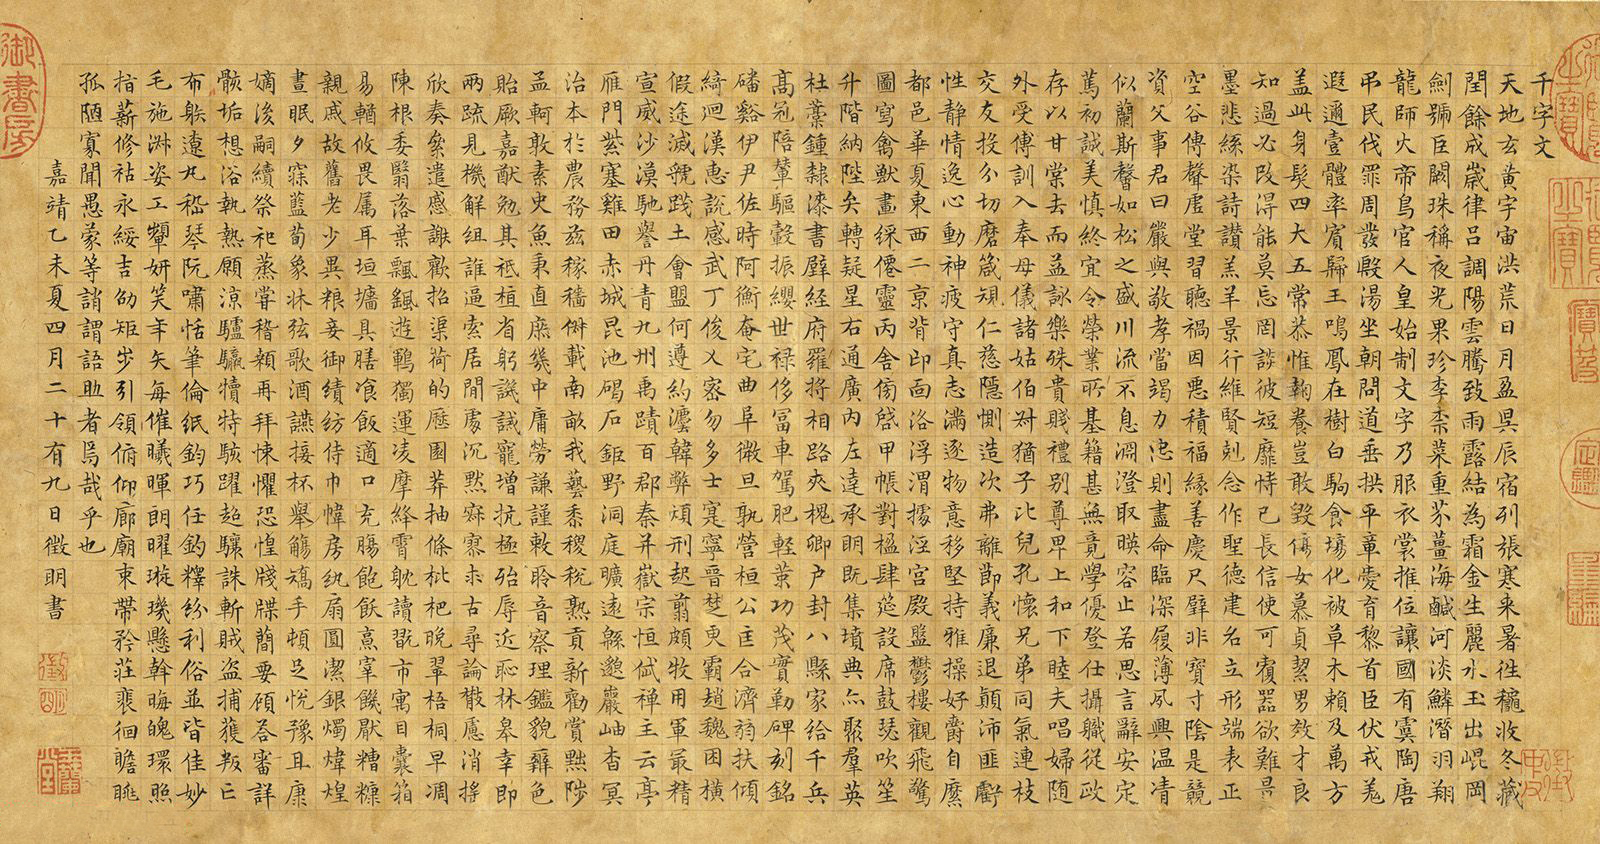 千字文
天地玄黃宇宙洪荒日月盈昃辰宿列張寒來暑往穐收冬藏
閏餘成歲律呂調陽雲騰致雨露結為霜金生麗水玉出崐岡
劍號巨闕珠稱夜光果珍李柰菜重芥薑海鹹河淡鱗潛羽翔
龍師火帝鳥官人皇始制文字乃服衣裳推位讓國有虞陶唐
吊民伐罪周發殷湯坐朝問道垂拱平章愛育黎首臣伏戎羌
遐邇壹體率賓歸王鳴鳳在樹白駒食場化被草木賴及萬方
蓋此身髮四大五常恭惟鞠養豈敢毀傷女慕貞絜男效才良
知過必改得能莫忘罔談彼短靡恃己長信使可覆器欲難量
墨悲絲染詩讚羔羊景行維賢剋念作聖德建名立形端表正
空谷傳聲虛堂習聽禍因惡積福緣善慶尺璧非寶寸陰是競
資父事君曰嚴與敬孝當竭力忠則盡命臨深履薄夙興溫凊
似蘭斯馨如松之盛川流不息淵澄取暎容止若思言辭安定
篤初誠美慎終宜令榮業所基籍甚無竟學優登仕攝職從政
存以甘棠去而益詠樂殊貴賤禮別尊卑上和下睦夫唱婦隨
外受傅訓入奉母儀諸姑伯叔猶子比兒孔懷兄弟同氣連枝
交友投分切磨箴規仁慈隱惻造次弗離節義廉退顛沛匪虧
性靜情逸心動神疲守真志滿逐物意移堅持雅操好爵自縻
都邑華夏東西二京背邙面洛浮渭據涇宮殿盤鬱樓觀飛驚
圖寫禽獸畫綵僊靈丙舍傍啟甲帳對楹肆筵設席鼓瑟吹笙
升階納陛弁轉疑星右通廣內左達承明既集墳典亦聚羣英
杜藁鍾隸漆書壁経府羅將相路夾槐卿戶封八縣家給千兵
高冠陪輦驅轂振纓世祿侈富車駕肥軽策功茂實勒碑刻銘
磻谿伊尹佐時阿衡奄宅曲阜微旦孰營桓公匡合濟弱扶傾
綺迴漢惠說感武丁俊乂密勿多士寔寧晉楚更霸趙魏困橫
假途滅虢踐土會盟何遵約灋韓弊煩刑起翦頗牧用軍最精
宣威沙漠馳譽丹青九州禹蹟百郡秦并嶽宗恒岱禪主云亭
雁門紫塞雞田赤城昆池碣石鉅野洞庭曠遠緜邈巖岫杳冥
治本於農務茲稼穡俶載南畝我藝黍稷稅熟貢新勸賞黜陟
孟軻敦素史魚秉直庶幾中庸勞謙謹敕聆音察理鑑貌辨色
貽厥嘉猷勉其祗植省躬譏誡寵增抗極殆辱近恥林皋幸即
兩疏見機解組誰逼索居閒處沉默寂寥求古尋論散慮消搖
欣奏累遣慼謝歡招渠荷的歷園莽抽條枇杷晚翠梧桐早凋
陳根委翳落葉飄颻遊鵾獨運淩摩絳霄耽讀翫市寓目囊箱
易輶攸畏属耳垣墻具膳飡飯適口充腸飽飫烹宰饑厭糟糠
親戚故舊老少異粮妾御績紡侍巾帷房紈扇圓潔銀燭煒煌
晝眠夕寐藍荀象牀弦歌酒讌接杯舉觴矯手頓足悅豫且康
嫡後嗣續祭祀蒸嘗稽顙再拜悚懼恐惶牋牒簡要顧答審詳
骸垢想浴執熱願涼驢騾犢特駭躍超驤誅斬賊盗捕獲叛亡
布射遼丸嵇琴阮嘯恬筆倫紙鈞巧任釣釋紛利俗並皆佳妙
毛施淑姿工顰妍笑年矢每催曦暉朗曜璇璣懸斡晦魄環照
指薪修祜永綏吉劭矩步引領俯仰廊廟束帶矜莊裴徊瞻眺
孤陋寡聞愚蒙等誚謂語助者焉哉乎也
嘉靖乙未夏四月二十有九日徵明書
御書房
徵明